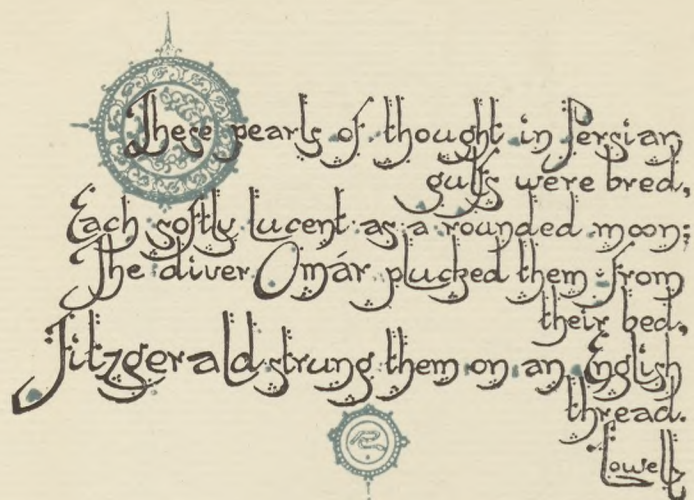 These pearls of thought in Persian
gulfs were bred,
Each softly lucent as a rounded moon;
The diver Omár plucked them from
their bed,
Fitzgerald strung them on an English
thread.
Lowell